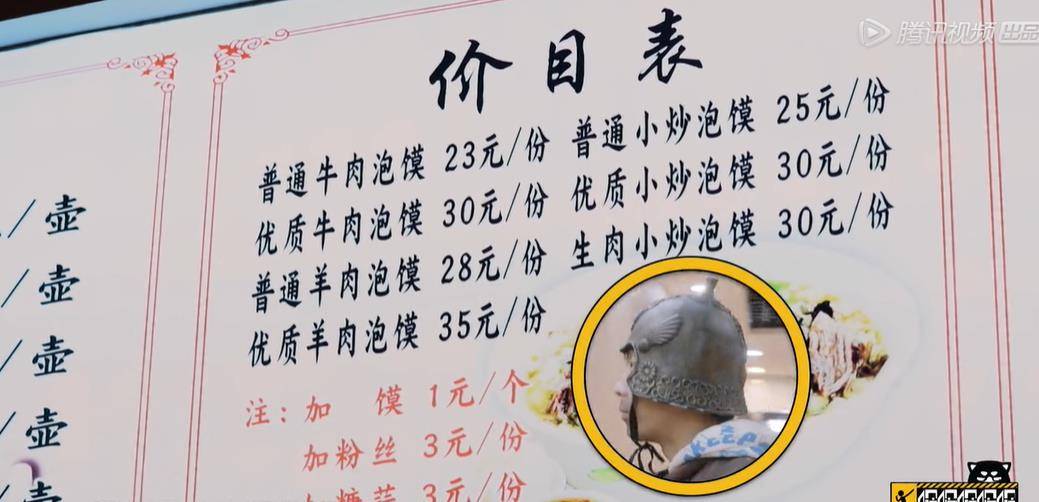 腾讯视频 出品
价目表
普通牛肉泡馍 23元/份 普通小炒泡馍 25元/份
优质牛肉泡馍 30元/份 优质小炒泡馍 30元/份
普通羊肉泡馍 28元/份 生肉小炒泡馍 30元/份
优质羊肉泡馍 35元/份
注：加 馍 1元/个
加粉丝 3元/份
加糖蒜 3元/份
/壶
/壶
/壶
/壶